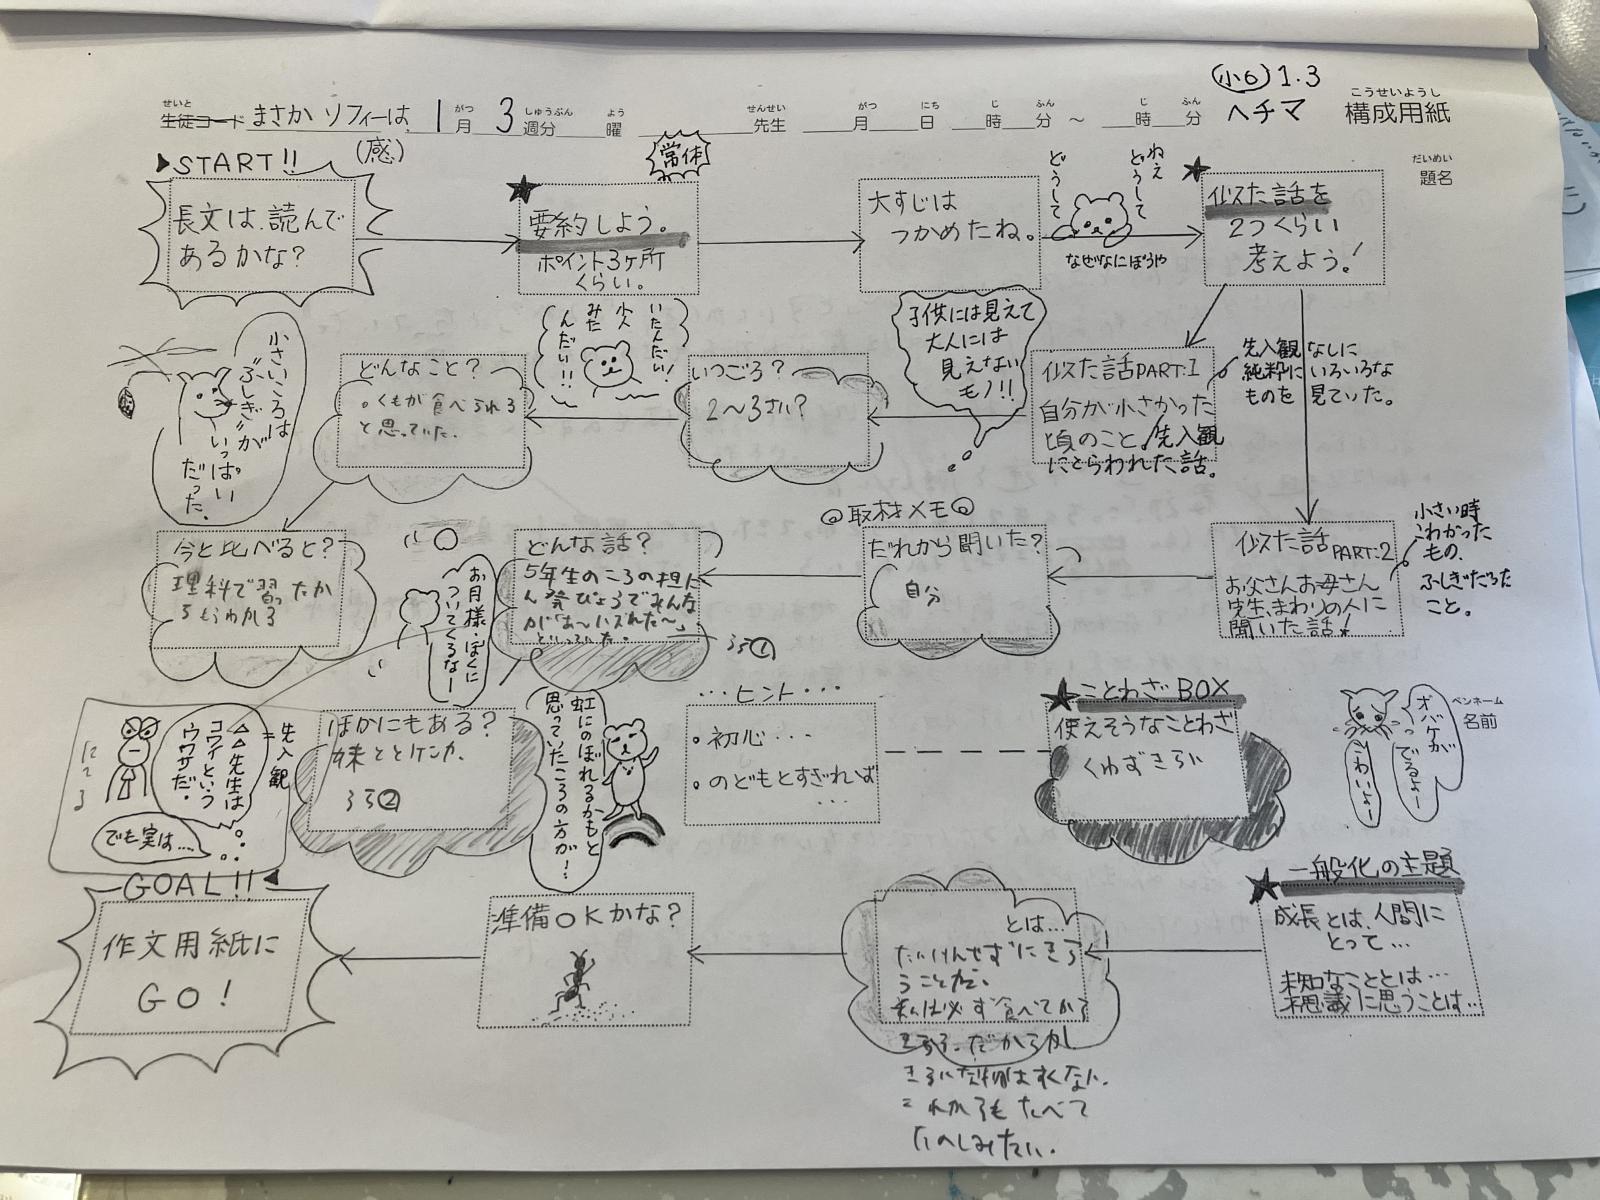 小6 1.3
せいと がつ しゅうぶん よう せんせい がつ にち じ ふん じ ふん こうせいようし
生徒コード まさか ソフィーは、 1月 3週分 曜 先生 月 日 時 分 ～ 時 分 ヘチマ 構成用紙
(感)
だいめい
題名
START!!
長文は、読んで
あるかな?
常体
★
要約しよう。
ポイント3ヶ所
くらい。
大すじは
つかめたね。
ねえ
どうして
どうして
なぜなにぼうや
★
似た話を
2つくらい
考えよう!
似た話PART:1
自分が小さかった
頃のこと。先入観
にとらわれた話。
先入観なしに
純粋にいろいろな
ものを見ていた。
子供には見えて
大人には
見えない
モノ!!
いつごろ?
2～3さい?
どんなこと?
。くもが食べられる
と思っていた。
小さいころは
"ふしぎ"が
いっぱい
だった。
今と比べると?
理科で習ったか
らもうわかる
似た話 PART:2
お父さんお母さん
先生、まわりの人に
聞いた話!
小さい時
こわかった
もの、
ふしぎだった
こと。
◎取材メモ◎
だれから聞いた?
自分
どんな話?
5年生のころの担に
うら①
お月様・ぼくに
ついてくるなー
ほかにもある?
うら②
虹にのぼれるかもと
思っていたころの方が…!
…ヒント…
・初心…
・のどもとすぎれば
…
★ことわざBOX
使えそうなことわざ
くわずきらい
オバケが
でるよー
こわいよー
ペンネーム
名前
先入観
=
△△先生は
コワイという
ウワサだ。
でも実は…
にてる
★一般化の主題
成長とは、人間に
とって…
未知なこととは…
不思議に思うことは…
とは…
たいけんせずにきら
うことだ。
私は必ず食べてから
これからもたべて
たのしみたい。
準備OKかな?
GOAL!!
作文用紙に
GO!